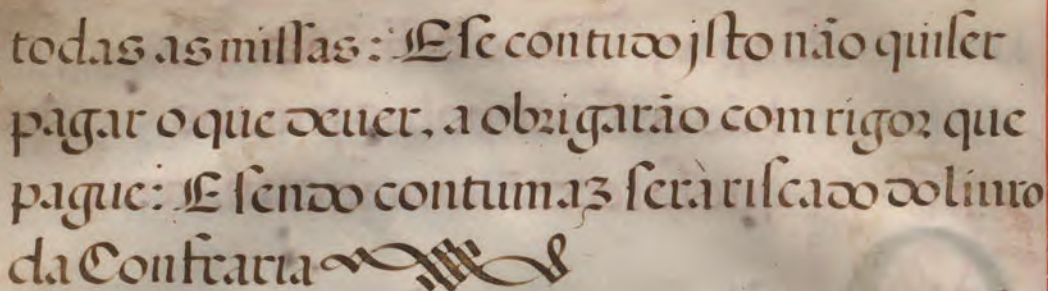 todas as missas: E se com tudo jsto não quiser
pagar o que deuer, a obrigarão com rigor que
pague: E sendo contumaz serà riscado do liuro
da Confraria